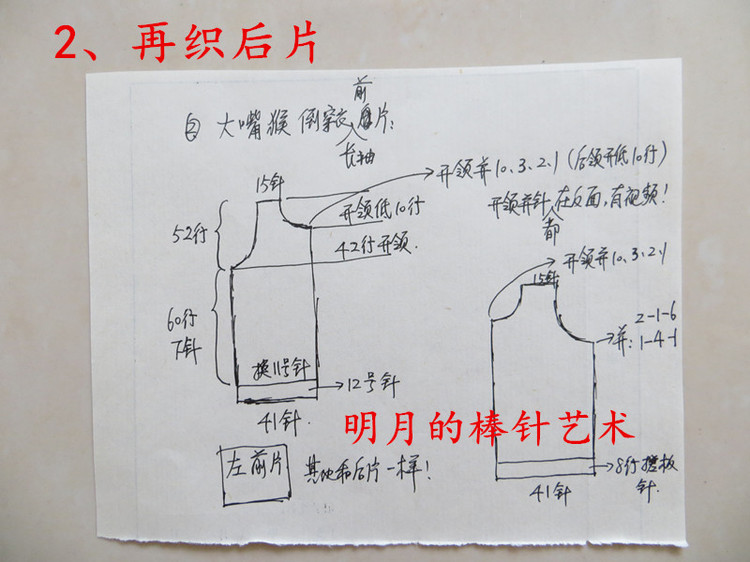 2、再织后片
前
② 大嘴猴倒穿衣片:
长袖
开领并10、3、2、1(后领开低10行)
15针
开领低10行
开领并针在反面,有视频!
都
52行
42行开领.
开领并10、3、2、1
15针
60行
下针
2-1-6
并: 1-4-1
换11号针
12号针
41针.
明月的棒针艺术
左前片
其他和后片一样!
8行搓板
针.
41针